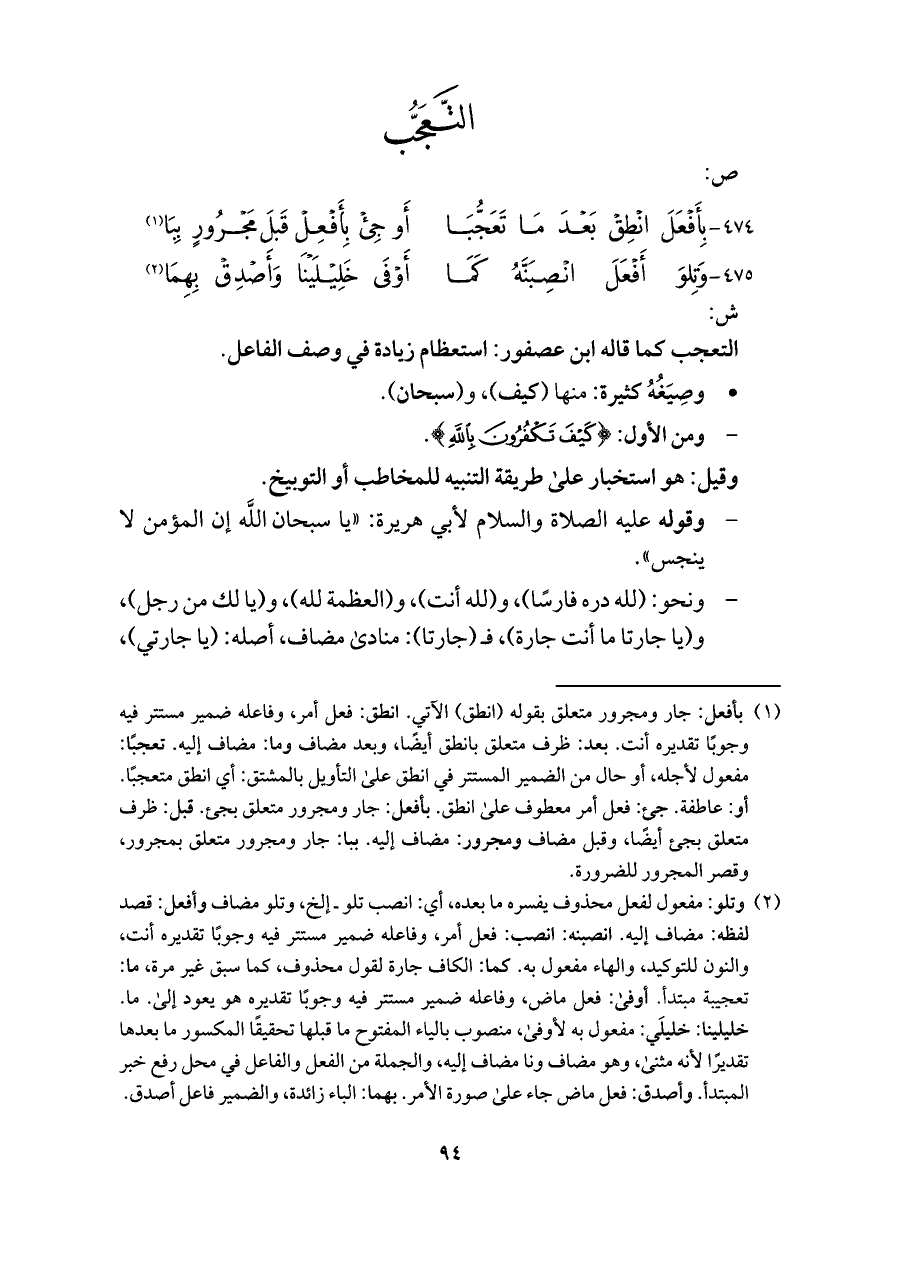 التَّعَجُّبُ
ص:
٤٧٤-بِأَفْعَلَ انْطِقْ بَعْدَ مَا تَعَجُّبَا أَو جِئْ بِأَفْعِلْ قَبلَ مَجْرُورٍ بِبَا(١)
٤٧٥-وَتِلوَ أَفْعَلَ انْصِبَنَّهُ كَمَا أَوْفَى خَلِيْلَيْنَا وَأَصْدِقْ بِهِمَا(٢)
ش:
التعجب كما قاله ابن عصفور: استعظام زيادة في وصف الفاعل.
• وصِيَغُهُ كثيرة: منها (كيف)، و(سبحان).
– ومن الأول: ﴿كَيْفَ تَكْفُرُونَ بِاللَّهِ﴾.
وقيل: هو استخبار علىٰ طريقة التنبيه للمخاطب أو التوبيخ.
– وقوله عليه الصلاة والسلام لأبي هريرة: «يا سبحان اللَّه إن المؤمن لا
ينجس».
– ونحو: (لله دره فارسًا)، و(لله أنت)، و(العظمة لله)، و(يا لك من رجل)،
و(يا جارتا ما أنت جارة)، فـ (جارتا): منادىٰ مضاف، أصله: (يا جارتي)،
(١) بأفعل: جار ومجرور متعلق بقوله (انطق) الآتي. انطق: فعل أمر، وفاعله ضمير مستتر فيه
وجوبًا تقديره أنت. بعد: ظرف متعلق بانطق أيضًا، وبعد مضاف وما: مضاف إليه. تعجبًا:
مفعول لأجله، أو حال من الضمير المستتر في انطق علىٰ التأويل بالمشتق: أي انطق متعجبًا.
أو: عاطفة. جئ: فعل أمر معطوف علىٰ انطق. بأفعل: جار ومجرور متعلق بجئ. قبل: ظرف
متعلق بجئ أيضًا، وقبل مضاف ومجرور: مضاف إليه. ببا: جار ومجرور متعلق بمجرور،
وقصر المجرور للضرورة.
(٢) وتلو: مفعول لفعل محذوف يفسره ما بعده، أي: انصب تلو ـ إلخ، وتلو مضاف وأفعل: قصد
لفظه: مضاف إليه. انصبنه: انصب: فعل أمر، وفاعله ضمير مستتر فيه وجوبًا تقديره أنت،
والنون للتوكيد، والهاء مفعول به. كما: الكاف جارة لقول محذوف، كما سبق غير مرة، ما:
تعجيبة مبتدأ. أوفىٰ: فعل ماض، وفاعله ضمير مستتر فيه وجوبًا تقديره هو يعود إلىٰ. ما.
خليلينا: خليلَي: مفعول به لأوفىٰ، منصوب بالياء المفتوح ما قبلها تحقيقًا المكسور ما بعدها
تقديرًا لأنه مثنىٰ، وهو مضاف ونا مضاف إليه، والجملة من الفعل والفاعل في محل رفع خبر
المبتدأ. وأصدق: فعل ماض جاء علىٰ صورة الأمر. بهما: الباء زائدة، والضمير فاعل أصدق.
٩٤